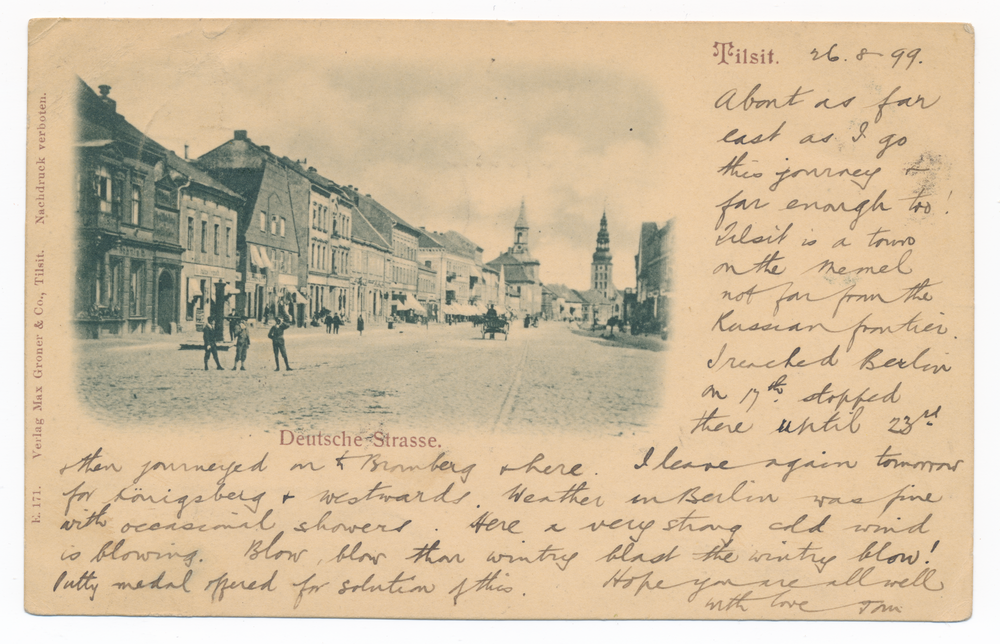 Tilsit. 26.8.99.
About as far
east as I go
this journey &
far enough too!
Tilsit is a town
on the Memel
not far from the
Russian frontier.
I reached Berlin
on 17th stopped
there until 23rd
& then journeyed on to Bromberg & here. I leave again tomorrow
for Königsberg & westwards. Weather in Berlin was fine
with occasional showers. Here a very strong cold wind
is blowing. Blow, blow thou wintry blast the wintry blow!
Putty medal offered for solution of this. Hope you are all well
with love Tom
Deutsche Strasse.
E. 171. Verlag Max Groner & Co., Tilsit. Nachdruck verboten.